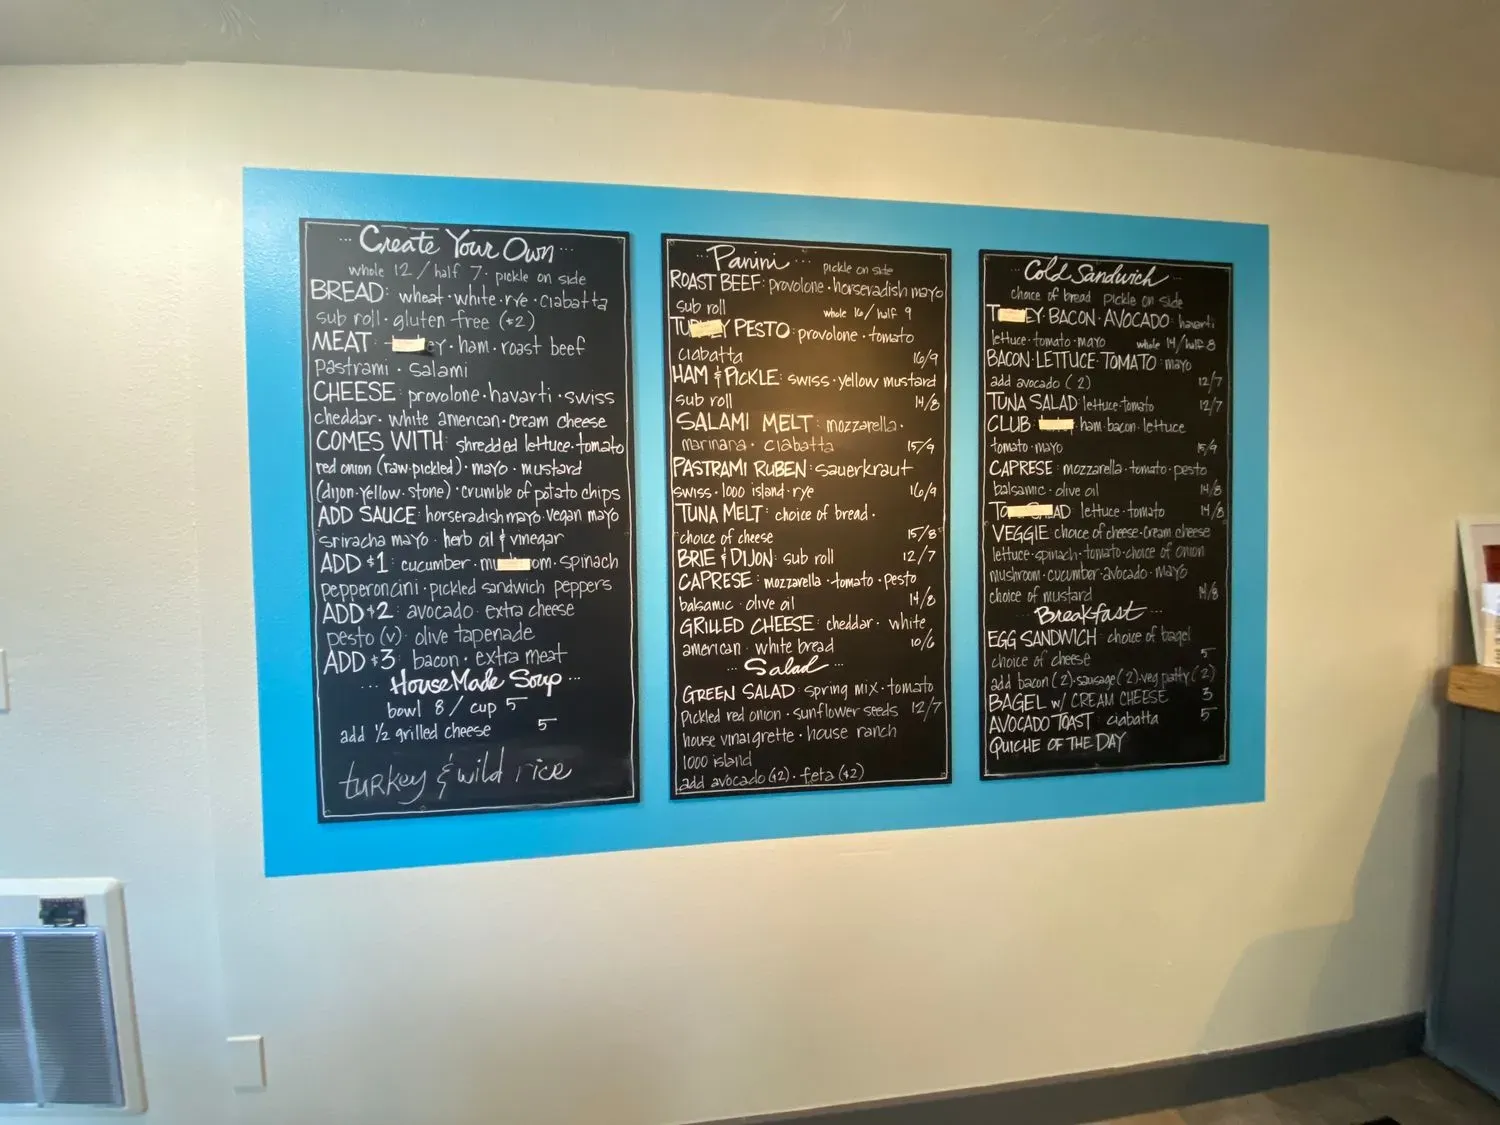 Create Your Own
whole 12 / half 7 · pickle on side
BREAD: wheat · white · rye · ciabatta
sub roll · gluten free (+2)
MEAT: ham · roast beef
pastrami · salami
CHEESE: provolone · havarti · swiss
cheddar · white american · cream cheese
COMES WITH: shredded lettuce · tomato
red onion (raw · pickled) · mayo · mustard
(dijon · yellow · stone) · crumble of potato chips
ADD SAUCE: horseradish mayo · vegan mayo
sriracha mayo · herb oil & vinegar
ADD $1: cucumber · spinach
pepperoncini · pickled sandwich peppers
ADD $2: avocado · extra cheese
pesto (v) · olive tapenade
ADD $3: bacon · extra meat
··· HouseMade Soup ···
bowl 8 / cup 5
add 1/2 grilled cheese 5
turkey & wild rice
Panini ··· pickle on side
ROAST BEEF: provolone · horseradish mayo
sub roll whole 16 / half 9
PESTO: provolone · tomato
ciabatta 16/9
HAM & PICKLE: swiss · yellow mustard
sub roll 14/8
SALAMI MELT: mozzarella ·
marinara · ciabatta 15/9
PASTRAMI RUBEN: sauerkraut
swiss · 1000 island · rye 16/9
TUNA MELT: choice of bread ·
choice of cheese 15/8
BRIE & DIJON: sub roll 12/7
CAPRESE: mozzarella · tomato · pesto
balsamic · olive oil 14/8
GRILLED CHEESE: cheddar · white
american · white bread 10/6
··· Salad ···
GREEN SALAD: spring mix · tomato
pickled red onion · sunflower seeds 12/7
house vinaigrette · house ranch
1000 island
add avocado (+2) · feta (+2)
Cold Sandwich
choice of bread pickle on side
BACON · AVOCADO: havarti
lettuce · tomato · mayo whole 14 / half 8
BACON · LETTUCE · TOMATO: mayo
add avocado (2) 12/7
TUNA SALAD: lettuce · tomato 12/7
CLUB: ham · bacon · lettuce
tomato · mayo 15/9
CAPRESE: mozzarella · tomato · pesto
balsamic · olive oil 14/8
lettuce · tomato 14/8
VEGGIE: choice of cheese · cream cheese
lettuce · spinach · tomato · choice of onion
mushroom · cucumber · avocado · mayo
choice of mustard 14/8
Breakfast ···
EGG SANDWICH: choice of bagel
choice of cheese 5
add bacon (2) · sausage (2) · veg patty (2)
BAGEL w/ CREAM CHEESE 3
AVOCADO TOAST: ciabatta 5
QUICHE OF THE DAY